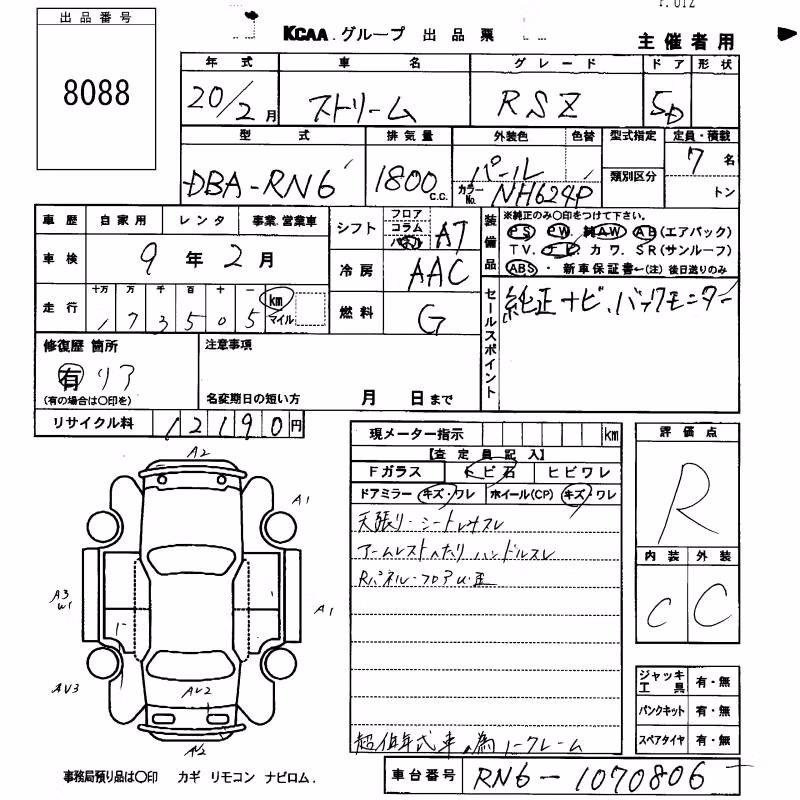 出品番号
8088
KCAA グループ 出品票
主催者用
年式 車名 グレード ドア 形状
20/2月 ストリーム RSZ 5D
型式 排気量 外装色 色替 型式指定 定員・積載
DBA-RN6 1800 c.c. パール 類別区分 7名
カラーNo. NH624P トン
車歴 自家用 レンタ 事業・営業車
シフト フロア コラム AT
装備品 ※純正のみ○印をつけて下さい。
PS PW 純AW AB(エアバック)
TV. ナビ カワ. SR(サンルーフ)
ABS ・ 新車保証書←(注) 後日送りのみ
車検 9年2月
冷房 AAC
走行 十万 万 千 百 十 一
173505 km マイル
燃料 G
セールスポイント 純正ナビ、バックモニター
修復歴 箇所 注意事項
有 リア
(有の場合は○印を) 名変期日の短い方 月 日まで
リサイクル料 12190円
現メーター指示 km
【査定員記入】
Fガラス トビ石 ヒビワレ
ドアミラー キズ・ワレ ホイール(CP) キズ・ワレ
天張り・シート
アームレスト ハンドルスレ
Rパネル・フロア
評価点
R
内装 外装
C C
A2
A1
A3
W1
A1
AV3
AV2
A2
ジャッキ工具 有・無
パンクキット 有・無
スペアタイヤ 有・無
超低年式車の為ノークレーム
車台番号 RN6-1070806
事務局預り品は○印 カギ リモコン ナビロム.